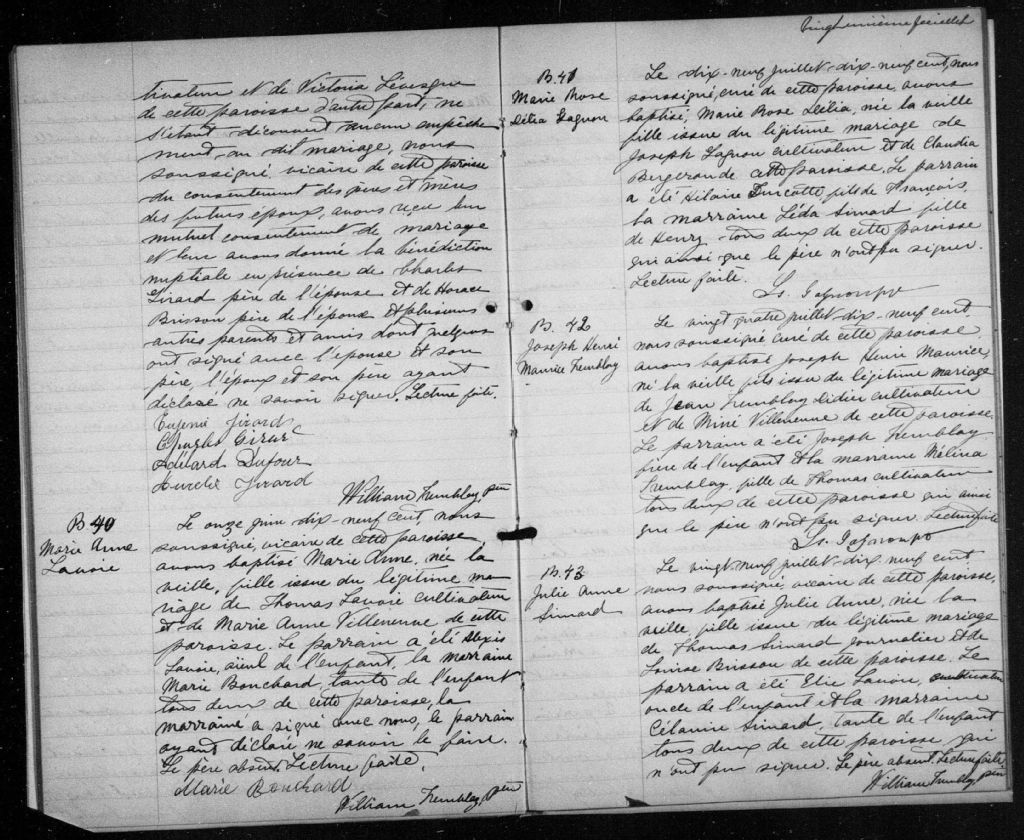 tivateur et de Victoria Lévesque
de cette paroisse d'autre part, ne
s'étant découvert aucun empêche
ment au dit mariage, nous
soussigné vicaire de cette paroisse
du consentement des pères et mères
des futurs époux, avons reçu leur
mutuel consentement de mariage
et leur avons donné la bénédiction
nuptiale en présence de Charles
Girard père de l'épouse et de Horace
Brisson père de l'époux et plusieurs
autres parents et amis dont quelques
ont signé avec l'épouse et son
père, l'époux et son père ayant
déclaré ne savoir signer. Lecture faite.
Eugénie Girard
Charles Girard
Adélard Dufour
Aurélie Girard
William Tremblay, ptre
B 40
Marie Anne
Lavoie
Le onze juin dix-neuf cent, nous
soussigné, vicaire de cette paroisse,
avons baptisé Marie Anne, née la
veille, fille issue du légitime ma
riage de Thomas Lavoie cultivateur
et de Marie Anne Villeneuve de cette
paroisse. Le parrain a été Alexis
Lavoie, aieul de l'enfant, la marraine
Marie Bouchard, tante de l'enfant
tous deux de cette paroisse, la
marraine a signé avec nous, le parrain
ayant déclaré ne savoir le faire.
Le père absent. Lecture faite.
Marie Bouchard
William Tremblay, ptre
Vingt unième feuillet
B. 41
Marie Rose
Délia Gagnon
Le dix-neuf juillet dix-neuf cent, nous
soussigné, curé de cette paroisse, avons
baptisé, Marie Rose Délia, née la veille
fille issue du légitime mariage de
Joseph Gagnon cultivateur et de Claudia
Bergeron de cette paroisse. Le parrain
a été Hilaire Turcotte, fils de François,
la marraine Léda Simard fille
de Henry tous deux de cette paroisse
qui ainsi que le père n'ont pu signer.
Lecture faite.
Ls. Gagnon ptre
B. 42
Joseph Henri
Maurice Tremblay
Le vingt quatre juillet dix-neuf cent
nous soussigné curé de cette paroisse
avons baptisé Joseph Henri Maurice,
né la veille fils issu du légitime mariage
de Jean Tremblay Didier cultivateur
et de Miné Villeneuve de cette paroisse.
Le parrain a été Joseph Tremblay
frère de l'enfant et la marraine Mélina
Tremblay, fille de Thomas cultivateur
tous deux de cette paroisse qui ainsi
que le père n'ont pu signer. Lecture faite
Ls. Gagnon ptre
B. 43
Julie Anne
Simard
Le vingt-neuf juillet dix-neuf cent
nous soussigné vicaire de cette paroisse,
avons baptisé Julie Anne, née la
veille fille issue du légitime mariage
de Thomas Simard journalier et de
Louise Brisson de cette paroisse. Le
parrain a été Elie Lavoie, cultivateur
oncle de l'enfant et la marraine
Célanire Simard, tante de l'enfant
tous deux de cette paroisse qui
n'ont pu signer. Le père absent. Lecture faite
William Tremblay ptre